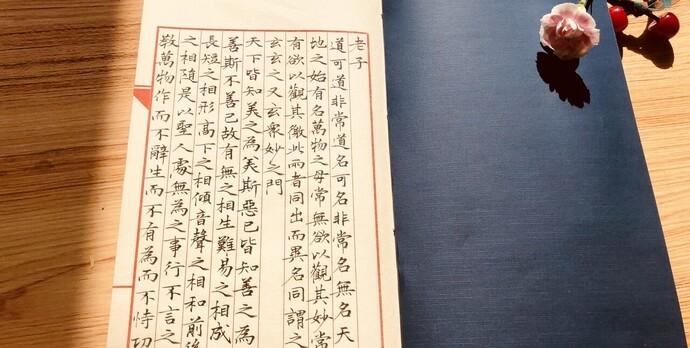 老子
道可道非常道名可名非常名無名天
地之始有名萬物之母常無欲以觀其妙常
有欲以觀其徼此兩者同出而異名同謂之
玄玄之又玄衆妙之門
天下皆知美之為美斯惡已皆知善之為
善斯不善已故有無之相生難易之相成
長短之相形高下之相傾音聲之相和前後
之相隨是以聖人處無為之事行不言之
教萬物作而不辭生而不有為而不恃功